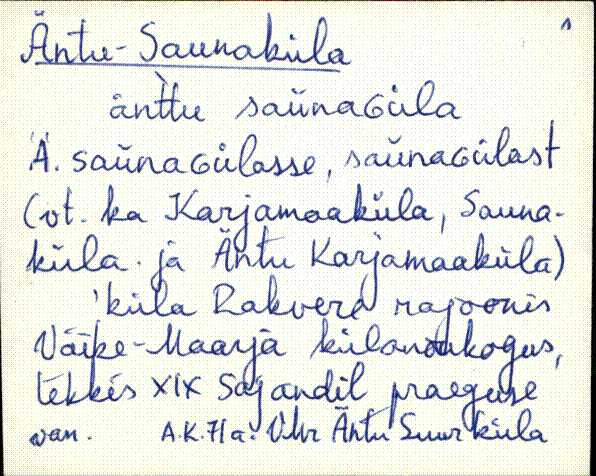 Äntu-Saunaküla 1
änt̀tu saŭnaGüla
Ä. saŭnaGülasse, saŭnaGülast
(vt. ka Karjamaaküla, Sauna-
küla ja Äntu Karjamaaküla)
'küla Rakvere rajoonis
Väike-Maarja külanõukogus,
tekkis XIX sajandil praeguse
A.K. 71 a. Vhr Äntu Suurküla